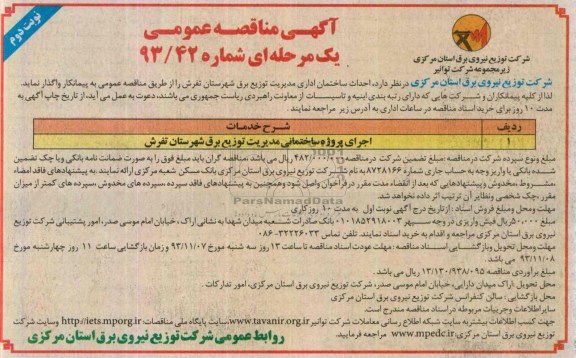 نوبت دوم
آگهی مناقصه عمومی
یک مرحله ای شماره ۹۳/۴۲
شرکت توزیع نیروی برق استان مرکزی
زیرمجموعه شرکت توانیر
شرکت توزیع نیروی برق استان مرکزی در نظر دارد، احداث ساختمان اداری مدیریت توزیع برق شهرستان تفرش را از طریق مناقصه عمومی به پیمانکار واگذار نماید.
لذا از کلیه پیمانکاران و شرکت هایی که دارای رتبه بندی ابنیه و تاسیسات از معاونت راهبردی ریاست جمهوری می باشند، دعوت به عمل می آید، از تاریخ چاپ آگهی به
مدت ۱۰ روز برای خرید اسناد مناقصه در ساعات اداری به آدرس زیر مراجعه نمایند.
ردیف شرح خدمات
۱ اجرای پروژه ساختمانی مدیریت توزیع برق شهرستان تفرش
مبلغ و نوع سپرده شرکت در مناقصه: مبلغ تضمین شرکت در مناقصه ۴۸۲/۰۰۰/۰۰۰ ریال می باشد. مناقصه گران باید مبلغ فوق را به صورت ضمانت نامه بانکی و یا چک تضمین
شده بانکی یا واریز وجه به حساب جاری شماره ۸۷۲۸۱۶۶ به نام شرکت توزیع نیروی برق استان مرکزی بانک مسکن شعبه مرکزی ارائه نمایند. به پیشنهادهای فاقد امضاء
،مشروط، مخدوش و پیشنهادهایی که بعد از انقضاء مدت مقرر در فراخوان واصل شود و همچنین به پیشنهادهای فاقد سپرده، سپرده های مخدوش، سپرده های کمتر از میزان
مقرر، چک شخصی و نظایر آن ترتیب اثر داده نخواهد شد.
مهلت و محل و مبلغ فروش اسناد: از تاریخ درج آگهی نوبت اول به مدت ۱۰ روز کاری
مبلغ ۵۰۰/۰۰۰ ریال فیش واریزی در وجه سپهر ۰۱۰۱۸۵۲۹۱۸۰۰۳ بانک صادرات شعبه میدان شهدا به نشانی اراک، خیابان امام موسی صدر، امور پشتیبانی شرکت توزیع
نیروی برق استان مرکزی مراجعه و اقدام به خرید اسناد نمایند. تلفن تماس ۳۲۲۲۶۰۳۳-۰۸۶
مهلت و محل تحویل و بازگشایی اسناد مناقصه: مهلت عودت اسناد مناقصه تا ساعت ۱۳ روز سه شنبه مورخ ۹۳/۱۱/۰۷ و زمان بازگشایی ساعت ۱۱ روز چهارشنبه مورخ
۹۳/۱۱/۰۸ می باشد.
مبلغ برآوردی مناقصه ۱۳/۱۳۰/۹۳۸/۰۹۵ ریال می باشد.
محل تحویل: اراک میدان دارایی، خیابان امام موسی صدر، شرکت توزیع نیروی برق استان مرکزی، امور تدارکات
محل بازگشایی: سالن کنفرانس شرکت توزیع نیروی برق استان مرکزی
سایر اطلاعات و جزییات مربوطه در اسناد مناقصه مندرج است.
جهت کسب اطلاعات بیشتر به سایت شبکه اطلاع رسانی معاملات شرکت توانیر www.tavanir.org.ir، سایت پایگاه ملی مناقصات: http://iets.mporg.ir و سایت شرکت
توزیع نیروی برق استان مرکزی: www.mpedc.ir مراجعه فرمایید.
روابط عمومی شرکت توزیع نیروی برق استان مرکزی
ParsNamadData